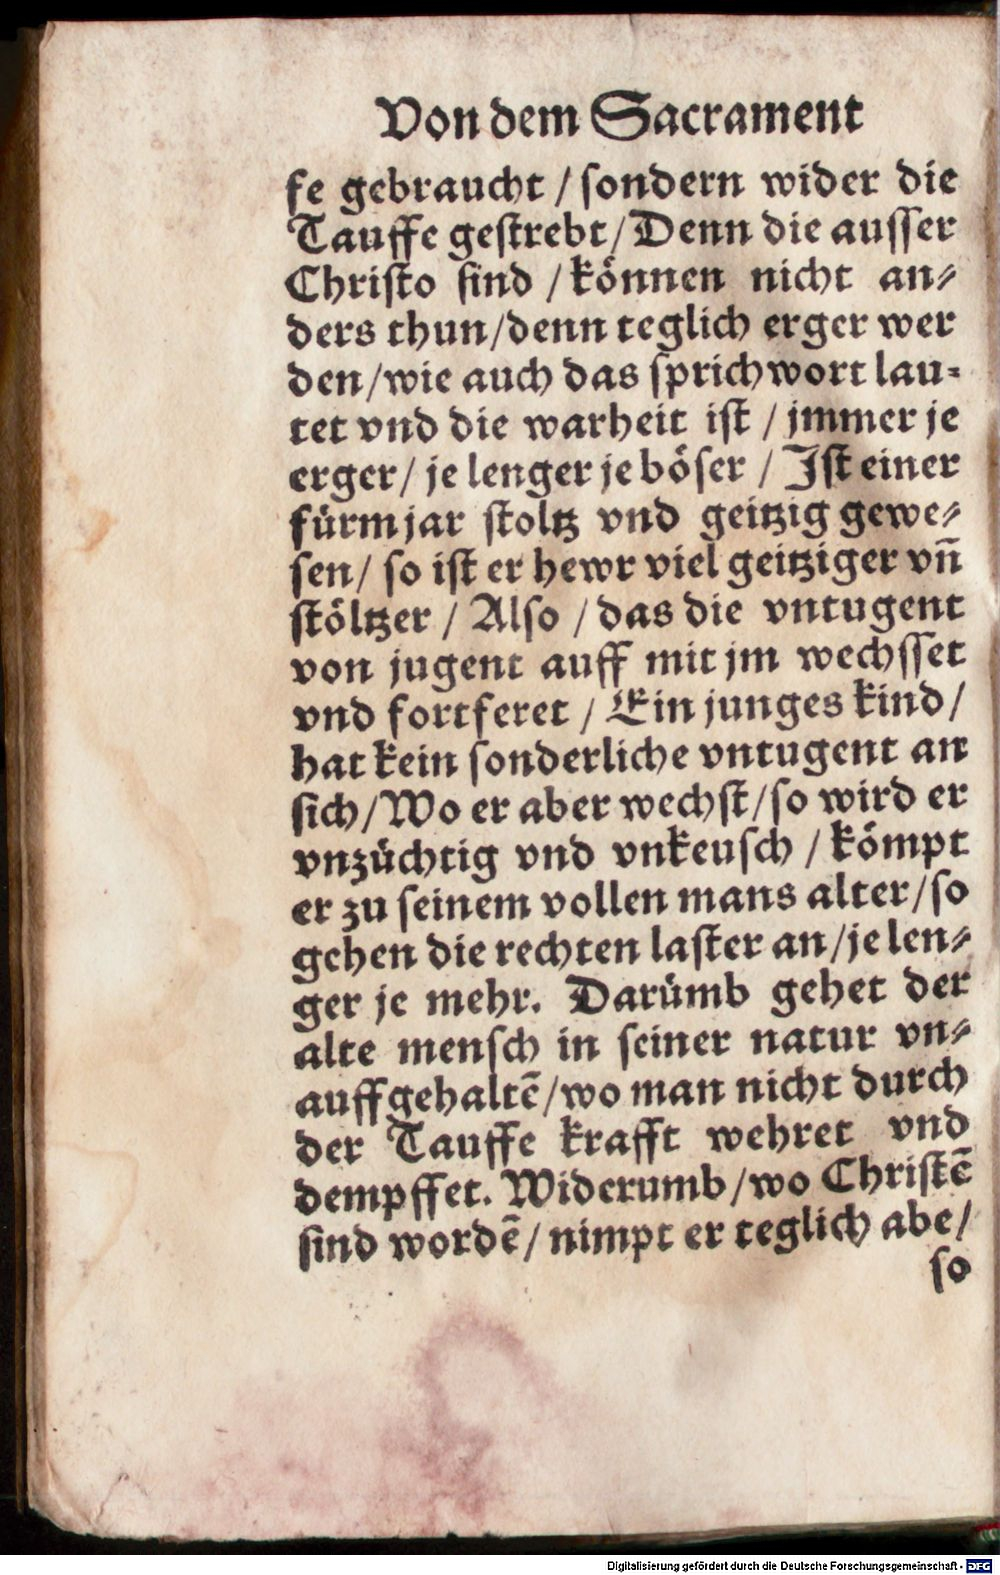 Von dem Sacrament
fe gebraucht / sondern wider die
Tauffe gestrebt / Denn die ausser
Christo sind / können nicht an⸗
ders thun / denn teglich erger wer
den / wie auch das sprichwort lau⸗
tet vnd die warheit ist / jmmer je
erger / je lenger je böser / Ist einer
fürm jar stoltz vnd geitzig gewe⸗
sen / so ist er hewr viel geitziger vn̄
stöltzer / Also / das die vntugent
von jugent auff mit jm wechsset
vnd fortferet / Ein junges kind /
hat kein sonderliche vntugent an
sich / Wo er aber wechst / so wird er
vnzüchtig vnd vnkeusch / kömpt
er zu seinem vollen mans alter / so
gehen die rechten laster an / je len⸗
ger je mehr. Darümb gehet der
alte mensch in seiner natur vn⸗
auffgehaltē / wo man nicht durch
der Tauffe krafft wehret vnd
dempffet. Widerumb / wo Christē
sind wordē / nimpt er teglich abe /
so
Digitalisierung gefördert durch die Deutsche Forschungsgemeinschaft - DFG